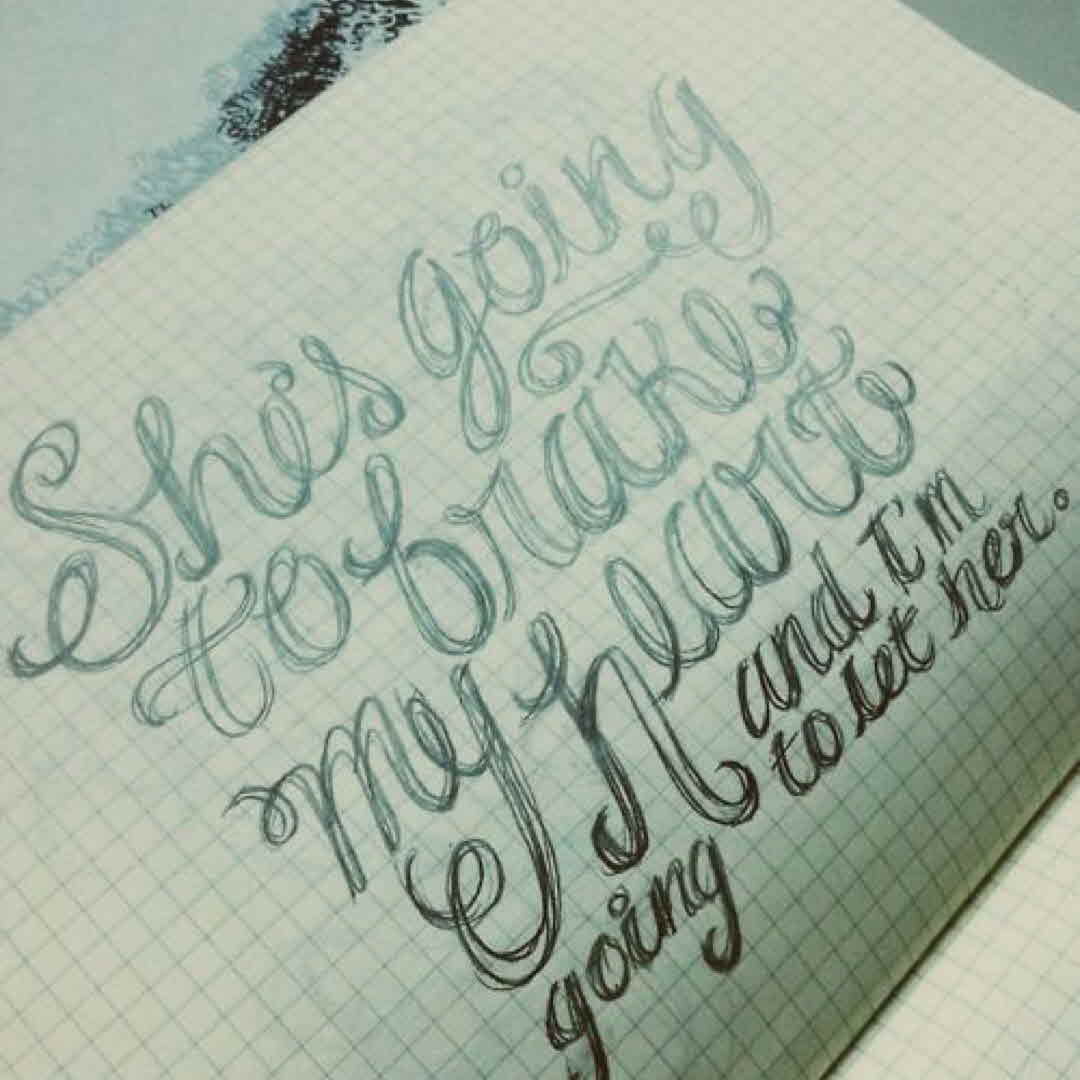 She's going
to brake
my heart
and I'm
going to let her.
Th